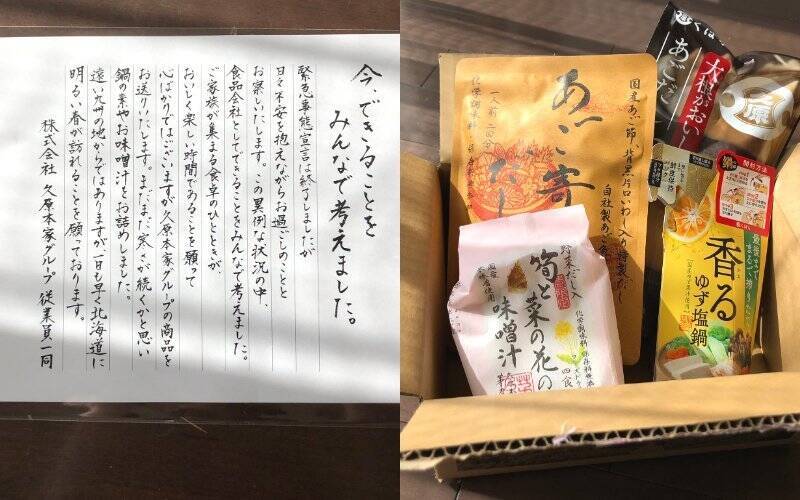 今、できることを
みんなで考えました。
緊急事態宣言は終了しましたが
日々不安を抱えながらお過ごしのことと
お察しいたします。この異例な状況の中、
食品会社としてできることをみんなで考えました。
ご家族が集まる食卓のひとときが、
おいしく楽しい時間であることを願って
心ばかりではございますが久原本家グループの商品を
お送りいたします。まだまだ寒さが続くかと思い
鍋の素やお味噌汁とお詰めしました。
遠い九州の地からではありますが一日も早く北海道に
明るい春が訪れることを願っております。
株式会社 久原本家グループ 従業員一同
国産あご節、背黒片口いわし入り特製だし
自社製あご
あご寄
だし
一人前 二回分
化学調味料
くばら
大根がおいしい
あごだし
久原
開封方法
香る
ゆず塩鍋
野菜だし入
筍と菜の花の
味噌汁
化学調味料・保存料無添加
四食